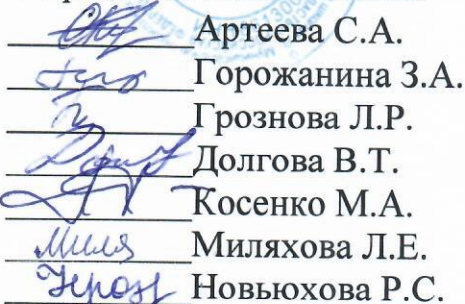 Артеева С.А.
Горожанина З.А.
Грознова Л.Р.
Долгова В.Т.
Косенко М.А.
Миляхова Л.Е.
Новьюхова Р.С.